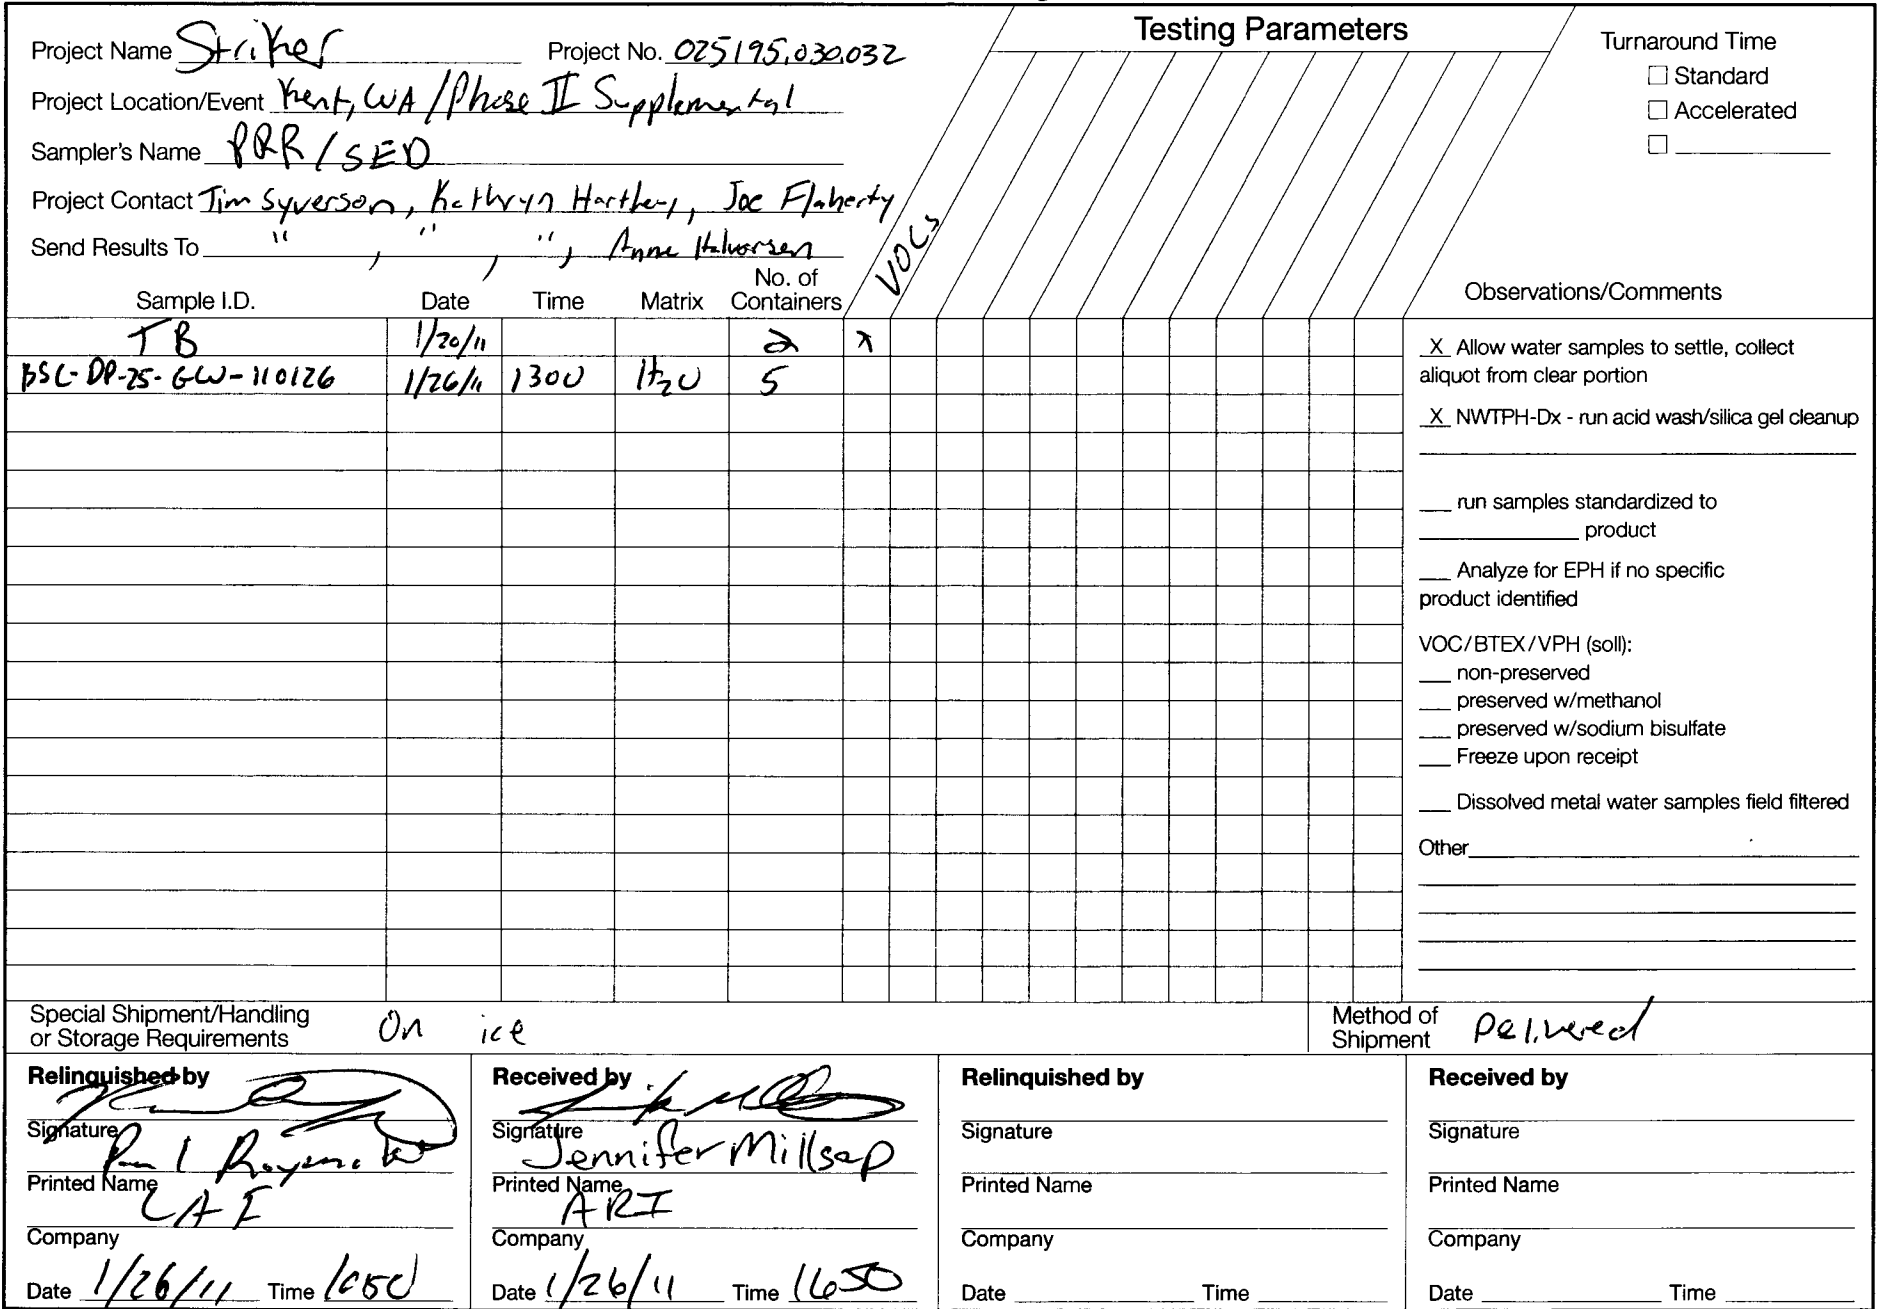 Testing Parameters
Project Name Striker Project No. 025195.030.032
Project Location/Event Kent, WA / Phase II Supplemental
Sampler's Name PRR / SED
Project Contact Tim Syverson, Kathryn Hartley, Joe Flaherty
Send Results To " , " , ", Anne Halvorsen
VOCs
Turnaround Time
Standard
Accelerated
Sample I.D. Date Time Matrix No. of Containers
Observations/Comments
TB 1/20/11 2 x
BSC-DP-25-GW-110126 1/26/11 1300 H2O 5
X Allow water samples to settle, collect
aliquot from clear portion
X NWTPH-Dx - run acid wash/silica gel cleanup
run samples standardized to
product
Analyze for EPH if no specific
product identified
VOC/BTEX/VPH (soil):
non-preserved
preserved w/methanol
preserved w/sodium bisulfate
Freeze upon receipt
Dissolved metal water samples field filtered
Other
Special Shipment/Handling
or Storage Requirements On ice
Method of
Shipment Delivered
Relinquished by
Signature
Paul
Printed Name
LAI
Company
Date 1/26/11 Time 1650
Received by
Signature
Jennifer Millsap
Printed Name
ARI
Company
Date 1/26/11 Time 1650
Relinquished by
Signature
Printed Name
Company
Date Time
Received by
Signature
Printed Name
Company
Date Time